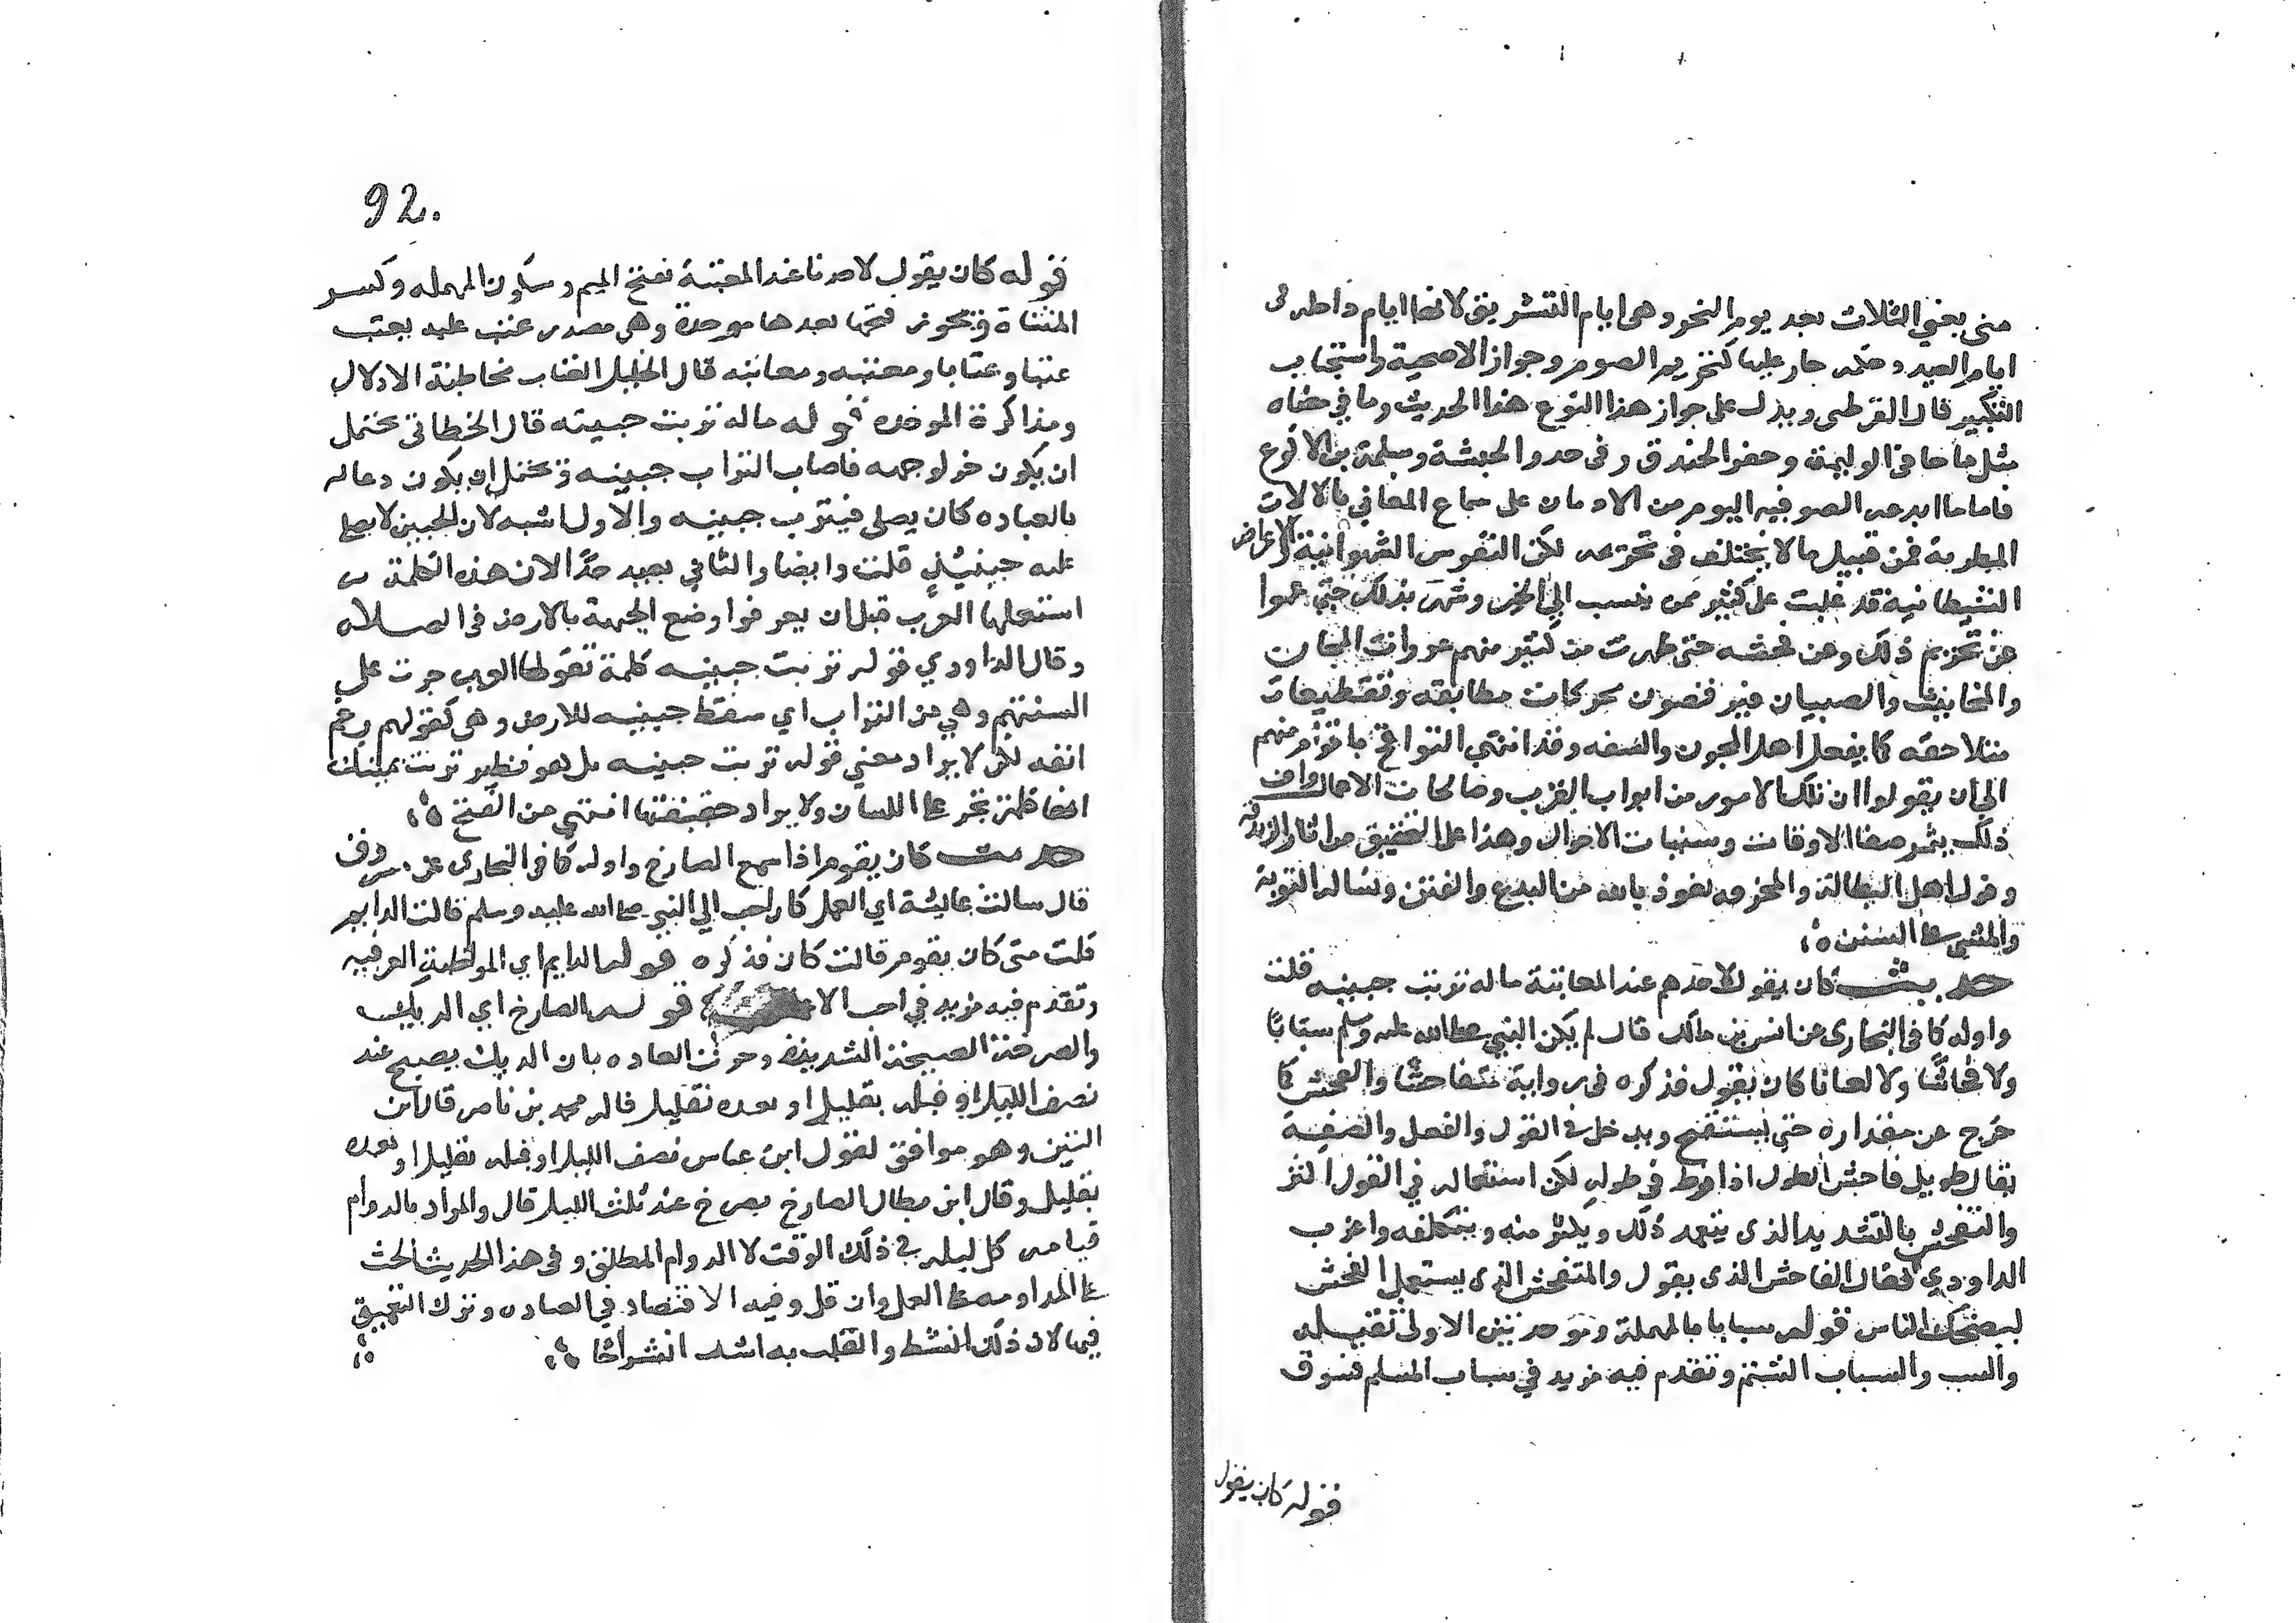 منى يعني الثلاث بعد يوم النحر وهى ايام التشريق لانها ايام داخله فى
ايام العيد وحكمه جار عليها كتحريم الصوم وجواز الاضحية واستحباب
التكبير قال القرطبى ويدل على جواز هذا النوع هذا الحديث وما في معناه
مثل ما جا فى الوليمة وحفر الخندق وفى حدو الحبشة وسلمة بن الاكوع
فاما ما ابدعه الصوفيه اليوم من الادمان على سماع المغاني بالالات
المطربة فمن قبيل ما لا يختلف فى تحريمه لكن النفوس الشهوانية والاغراض
الشيطانيه قد غلبت على كثير ممن ينسب الي الخير وشهر بذلك حتى عموا
عن تحريم ذلك وعن فحشه حتى ظهرت من كثير منهم عورات المجان
والمخانيث والصبيان فيرقصون بحركات مطابقه وتقطيعات
متلاحقه كما يفعل اهل المجون والسفه وقد انتهى التواقح باقوام منهم
الى ان يقولوا ان تلك الامور من ابواب القرب وصالحات الاعمال وان
ذلك يثمر صفا الاوقات وسنيات الاحوال وهذا على التحقيق من اثار الزندقه
وقول اهل البطالة والمخرقه نعوذ بالله من البدع والفتن ونساله التوبة
والمشي على السنن ه
حديث كان يقول لاحدهم عند المعاتبة ما له تربت جبينه قلت
واوله كما فى البخارى عن انس بن مالك قال لم يكن النبي صلى الله عليه وسلم سبابا
ولا فحاشا ولا لعانا كان يقول فذكره فى رواية متفاحشا والفحش كما
خرج عن مقداره حتى يستقبح ويدخل في القول والفعل والصفة
يقال طويل فاحش الطول اذا افرط في طوله لكن استعماله في القول اكثر
والتفحش بالتشديد الذى يتعمد ذلك ويكثر منه ويتكلفه واغرب
الداودي فقال الفاحش الذى يقول والمتفحش الذى يستعمل الفحش
ليضحك الناس قوله سبابا بالمهملة وموحدتين الاولى ثقيله
والسب والسباب الشتم وتقدم فيه مزيد في سباب المسلم فسوق
قوله كان يقول
92.
قوله كان يقول لاحدنا عند المعتبة بفتح الميم وسكون المهمله وكسر
المثناة ويجوز فتحها بعدها موحدة وهى مصدر عتب عليه يعتب
عتبا وعتابا ومعتبه ومعاتبه قال الخليل العتاب مخاطبة الادلال
ومذاكرة الموجده قوله ماله تربت جبينه قال الخطابى يحتمل
ان يكون خر لوجهه فاصاب التراب جبينه ويحتمل ان يكون دعا له
بالعباده كان يصلى فيترب جبينه والاول اشبه لان الجبين لا يصلى
عليه قلت وايضا والثاني بعيد جدا لان هذه الكلمة
استعملها العرب قبل ان يعرفوا وضع الجبهة بالارض فى الصلاه
وقال الداودي قوله تربت جبينه كلمة تقولها العرب جرت على
السنتهم وهي من التراب اي سقط جبينه للارض وهى كقولهم رغم
انفه لكن لا يراد معني قوله تربت جبينه بل هو نظير تربت يمينك
انها كلمة تجرى على اللسان ولا يراد حقيقتها انتهى من الفتح ه
حديث كان يقوم اذا سمع الصارخ واوله كما فى البخارى عن مسروق
قال سالت عايشة اي العمل كان احب الي النبي صلى الله عليه وسلم قالت الدايم
قلت متى كان يقوم قالت كان فذكره قوله الدايم اي المواظبة العرفيه
وتقدم فيه مزيد في احب الاعمال قوله الصارخ اي الديك
والصرخة الصيحة الشديدة وجرت العاده بان الديك يصيح عند
نصف الليل او قبله بقليل او بعده بقليل قاله محمد بن ناصر قال ابن
التين وهو موافق لقول ابن عباس نصف الليل او قبله بقليل او بعده
بقليل وقال ابن بطال الصارخ يصرخ عند ثلث الليل قال والمراد بالدوام
قيامه كل ليله في ذلك الوقت لا الدوام المطلق وفى هذا الحديث الحث
على المداومه على العمل وان قل وفيه الاقتصاد في العباده وترك التعميق
فيها لان ذلك انشط والقلب به اشد انشراحا